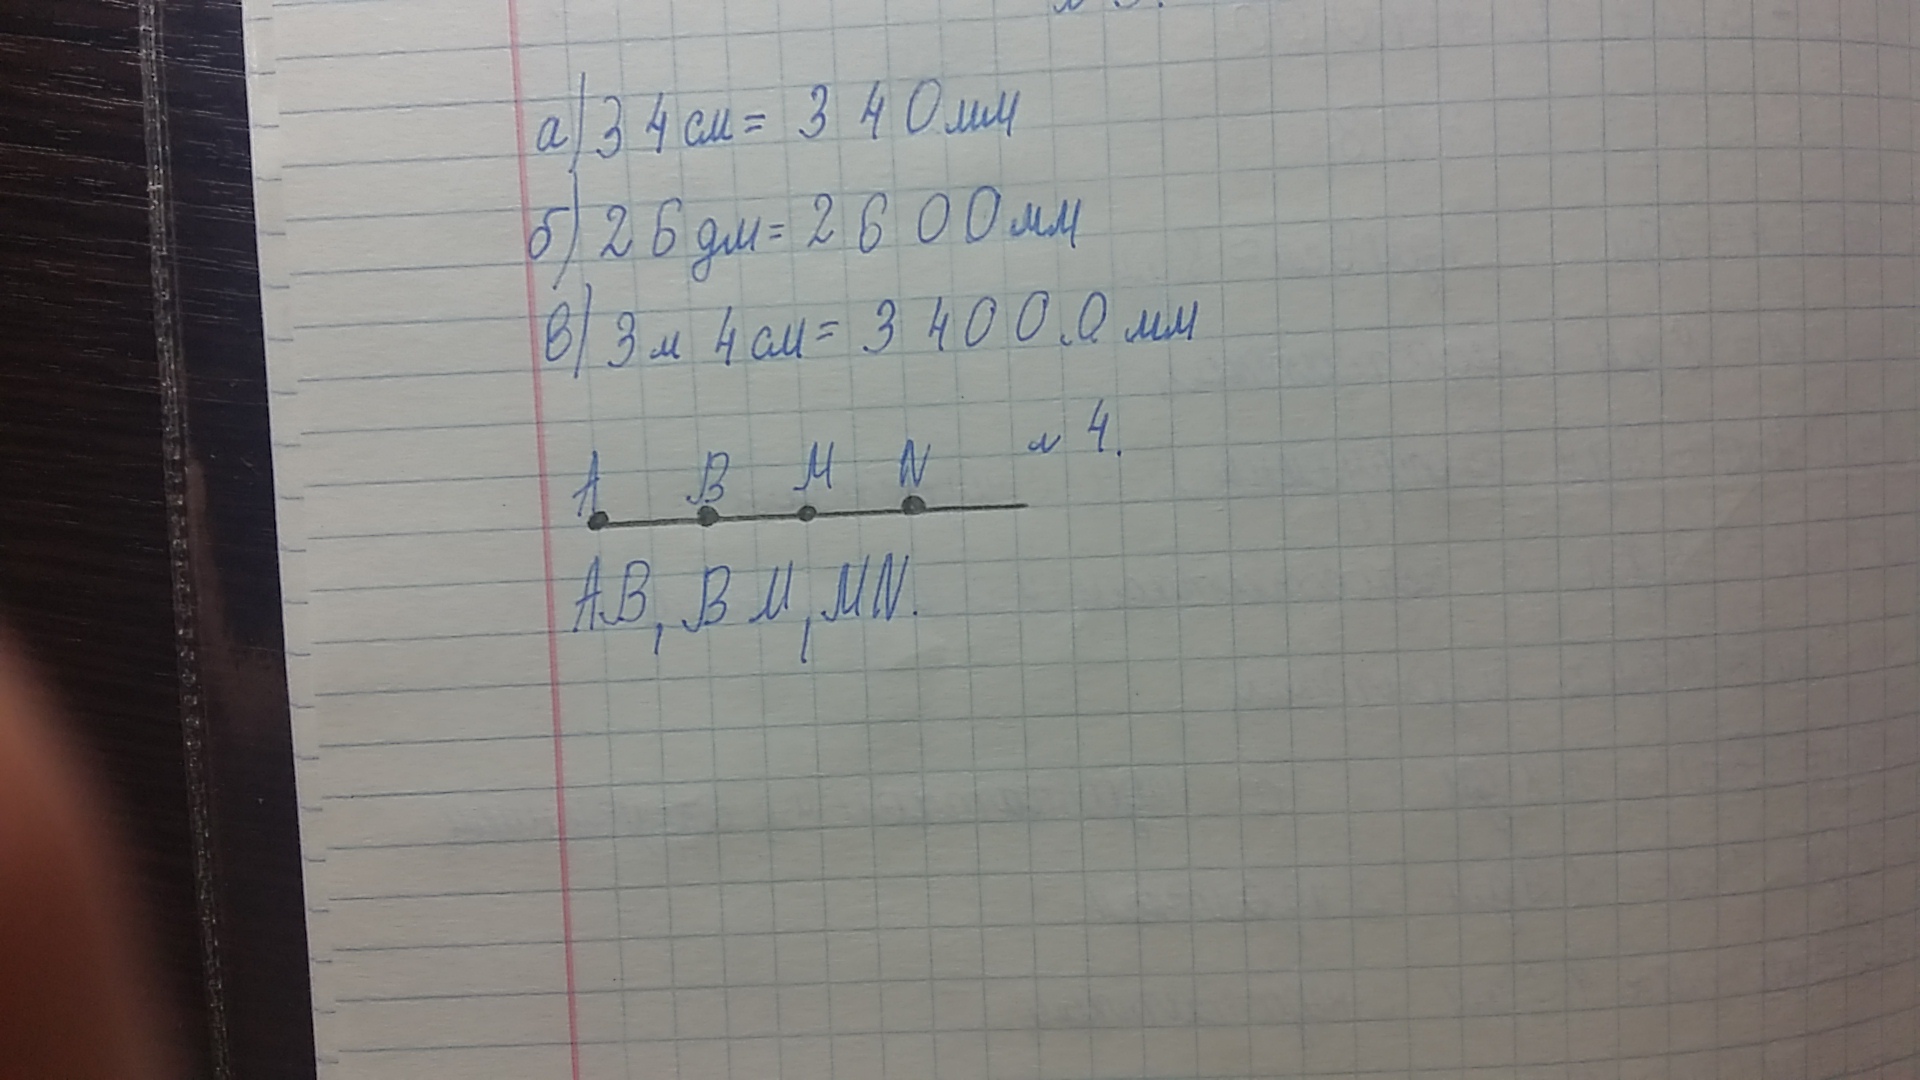 а) 34 см = 340 мм
б) 26 дм = 2600 мм
в) 3 м 4 см = 34000 мм
№ 4.
A B M N
AB, BM, MN.